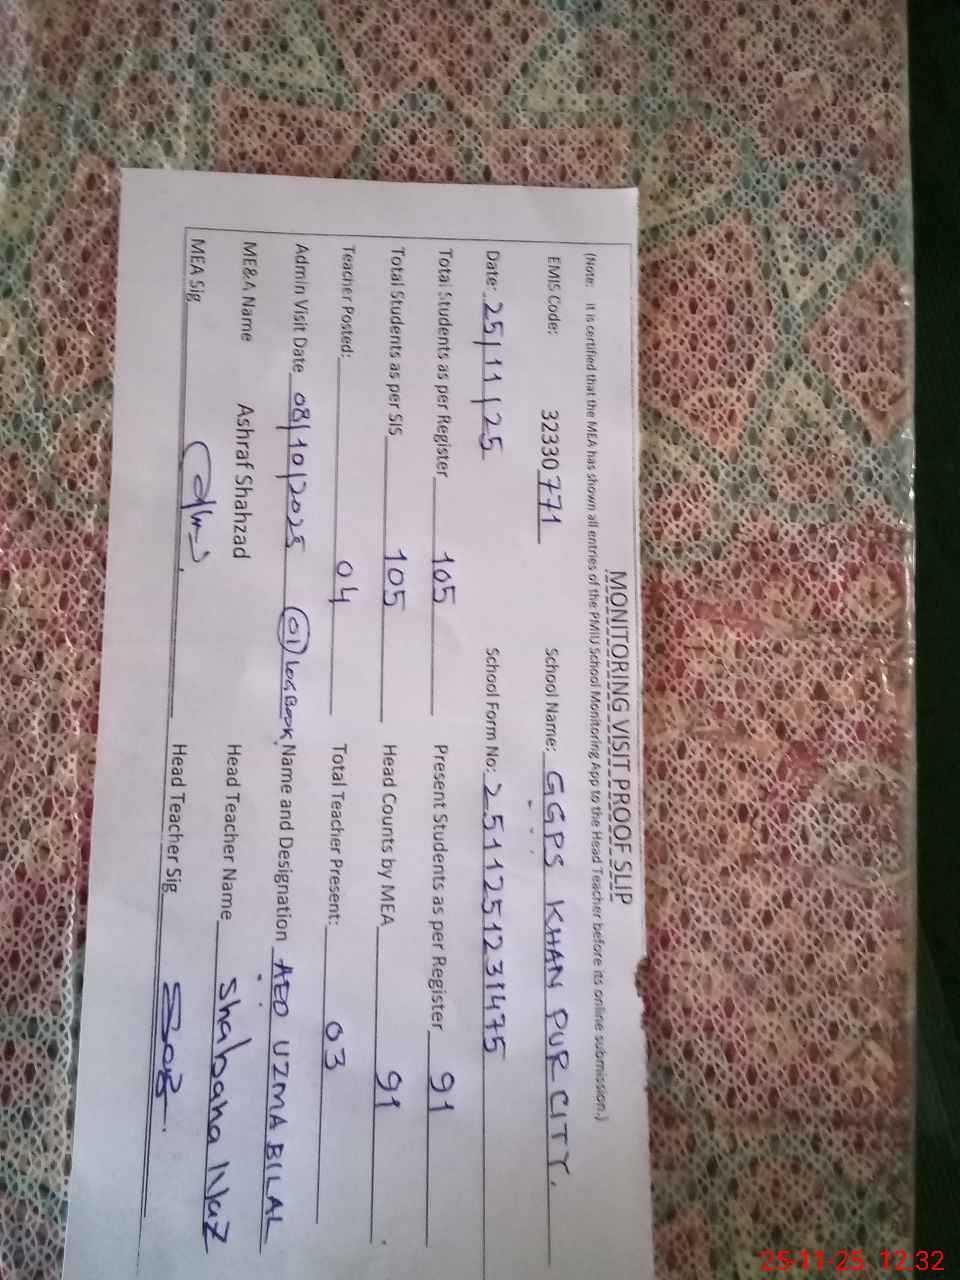 MONITORING VISIT PROOF SLIP
(Note: It is certified that the MEA has shown all entries of the PMIU School Monitoring App to the Head Teacher before its online submission.)
EMIS Code: 32330771 School Name: GGPS KHAN PUR CITY.
Date: 25/11/25 School Form No: 2511251231475
Total Students as per Register 105 Present Students as per Register 91
Total Students as per SIS 105 Head Counts by MEA 91
Teacher Posted: 04 Total Teacher Present: 03
Admin Visit Date 08/10/2025 01 LOGBOOK Name and Designation AEO UZMA BILAL
ME&A Name Ashraf Shahzad Head Teacher Name Shabana Naz
MEA Sig Head Teacher Sig
25-11-25 12.32